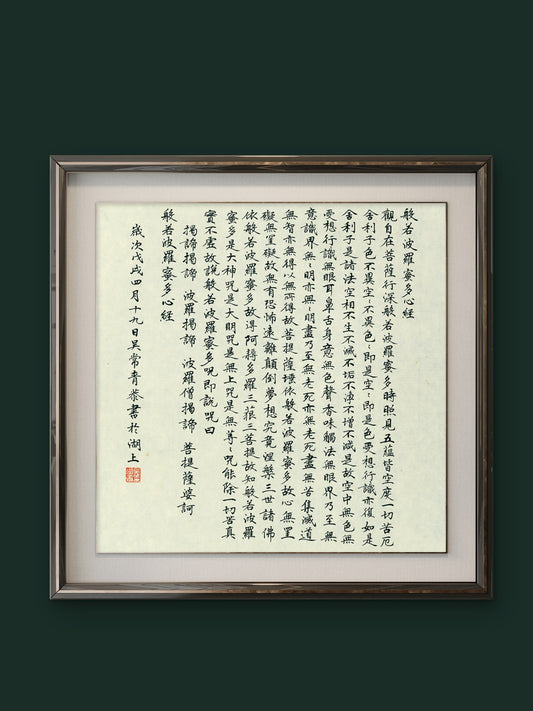 般若波羅蜜多心經
觀自在菩薩行深般若波羅蜜多時照見五蘊皆空度一切苦厄
舍利子色不異空〻不異色〻即是空〻即是色受想行識亦復如是
舍利子是諸法空相不生不滅不垢不淨不增不減是故空中無色無
受想行識無眼耳鼻舌身意無色聲香味觸法無眼界乃至無
意識界無〻明亦無〻明盡乃至無老死亦無老死盡無苦集滅道
無智亦無得以無所得故菩提薩埵依般若波羅蜜多故心無罣
礙無罣礙故無有恐怖遠離顛倒夢想究竟涅槃三世諸佛
依般若波羅蜜多故得阿耨多羅三藐三菩提故知般若波羅
蜜多是大神咒是大明咒是無上咒是無等〻咒能除一切苦真
實不虛故說般若波羅蜜多咒即說咒曰
揭諦揭諦 波羅揭諦 波羅僧揭諦 菩提薩婆訶
般若波羅蜜多心經
歲次戊戌四月十九日吳常青恭書於湖上